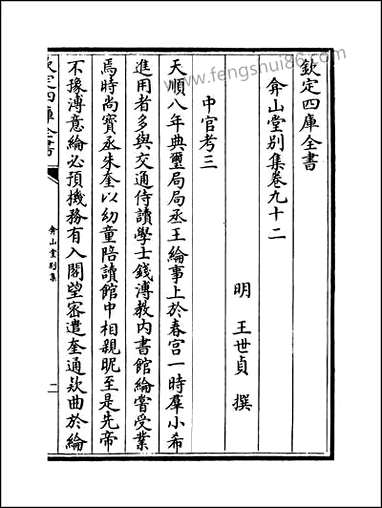 欽定四庫全書
弇山堂別集卷九十二
明 王世貞 撰
中官考三
天順八年典璽局局丞王綸事上於春宫一時羣小希
進用者多與交通侍讀學士錢溥教内書館綸嘗受業
焉時尚寶丞朱奎以幼童陪讀館中相親昵至是先帝
不豫溥意綸必預機務有入閣望密遣奎通欵曲於綸
欽定四庫全書
弇山堂別集
www.fengshui86.com